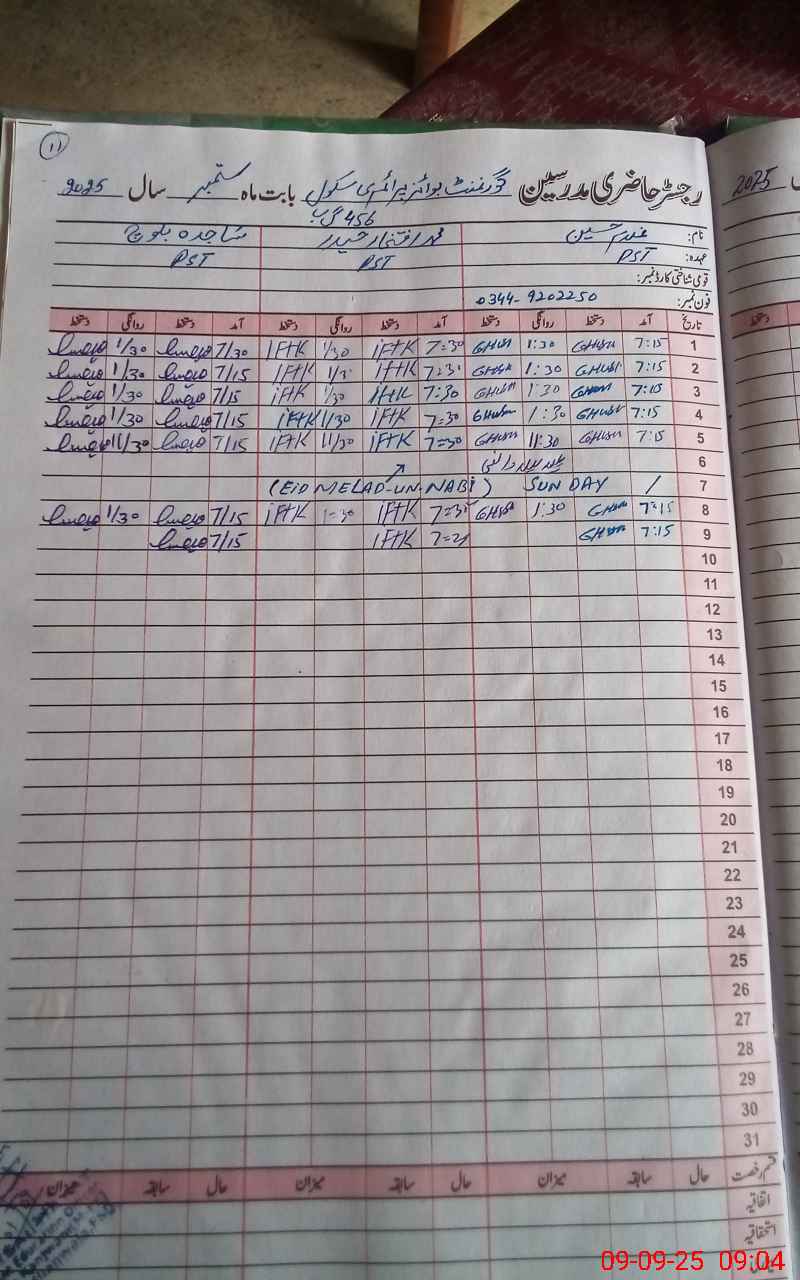 11
رجسٹر حاضری مدرسین گورنمنٹ بوائز پرائمری سکول بابت ماہ ستمبر سال 2025
456 گ ب
نام: غلام حسین محمد افتخار حیدر ساجدہ بلوچ
عہدہ: PST PST PST
قومی شناختی کارڈ نمبر:
فون نمبر: 0344-9202250
تاریخ آمد دستخط روانگی دستخط آمد دستخط روانگی دستخط آمد دستخط روانگی دستخط
1 7:15 GHusn 1:30 GHusn 7=30 IFtK 1/30 IFtK 7/30 1/30
2 7:15 GHusn 1:30 GHusn IFtK IFtK 7/15 1/30
3 7:15 GHusn 1:30 GHusn 7:30 IFtK 1/30 IFtK 7/15 1/30
4 7:15 GHusn 1:30 GHusn 7=30 IFtK 1/30 IFtK 7/15 1/30
5 7:15 GHusn 11:30 GHusn 7=30 IFtK 11/30 IFtK 7/15 11/30
6 عید میلاد النبی
7 / SUNDAY (EID MELAD-UN-NABI)
8 7:15 GHusn 1:30 GHusn IFtK 1=30 IFtK 7/15 1/30
9 7:15 GHusn IFtK 7/15
10
11
12
13
14
15
16
17
18
19
20
21
22
23
24
25
26
27
28
29
30
31
قسم رخصت حال سابقہ میزان حال سابقہ میزان حال سابقہ میزان
اتفاقیہ
استحقاقیہ
میزان
2025
دستخط
09-09-25 09:04